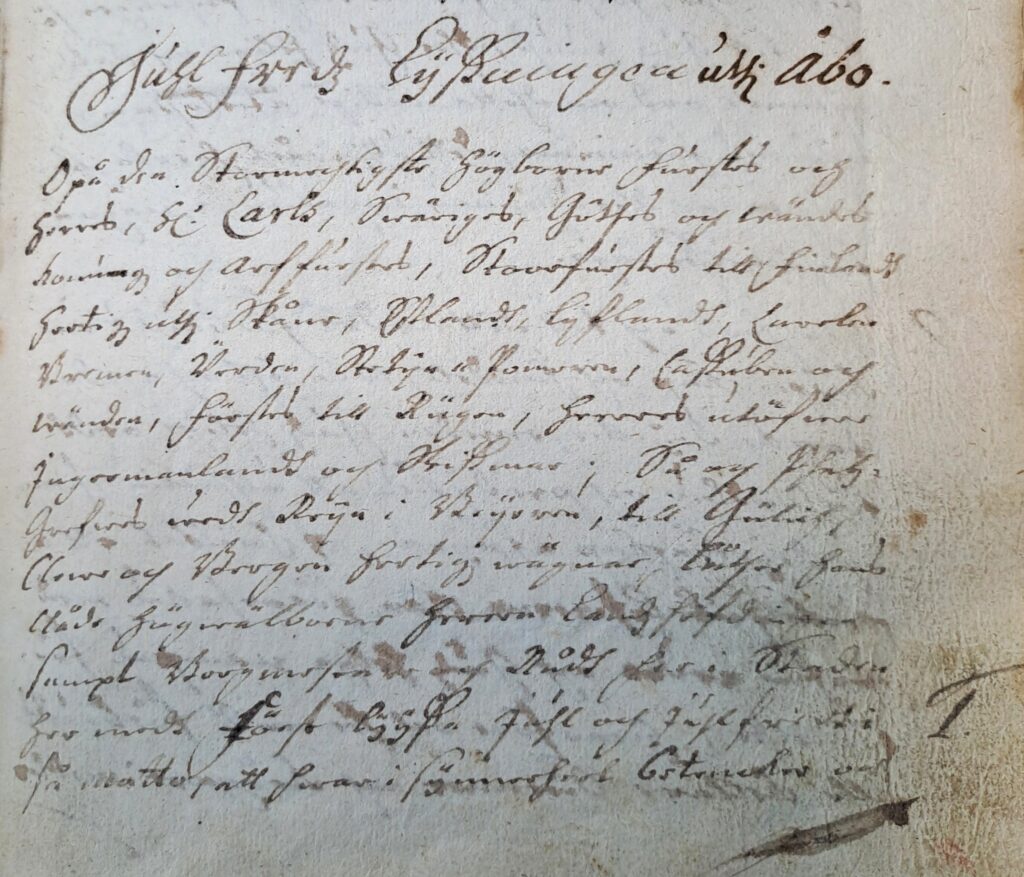 Juhl fredz Lyßningen uthi Åbo.
Opå den Stormechtigste Högborne Furstes och
Herres, H: Carls, Sweriges, Göthes och Wändes
Konungz och Arffurstes, Stoorfurstes till Finlandt
Hertigz uthi Skåne, Estlandt, Lyflandt, Carelen
Bremen, Verden, Stetijn Pomeren, Caßuben och
Wänden, Förstes till Rügen, Herres utöfwer
Ingermanlandt och Wißmar; Så och Phaltz-
Grefwes widt Reyn i Beyeren, till Gülich,
Clewe och Bergen Hertigz wägnar, låther hans
Nåde Högwälborne Herren Landzhöfdingen
sampt Borgmestare och Rådt här i Staden
här medt Liuse Juhl och Juhlfredt i
så motto, att hwar i synnerheet betencker och
I.